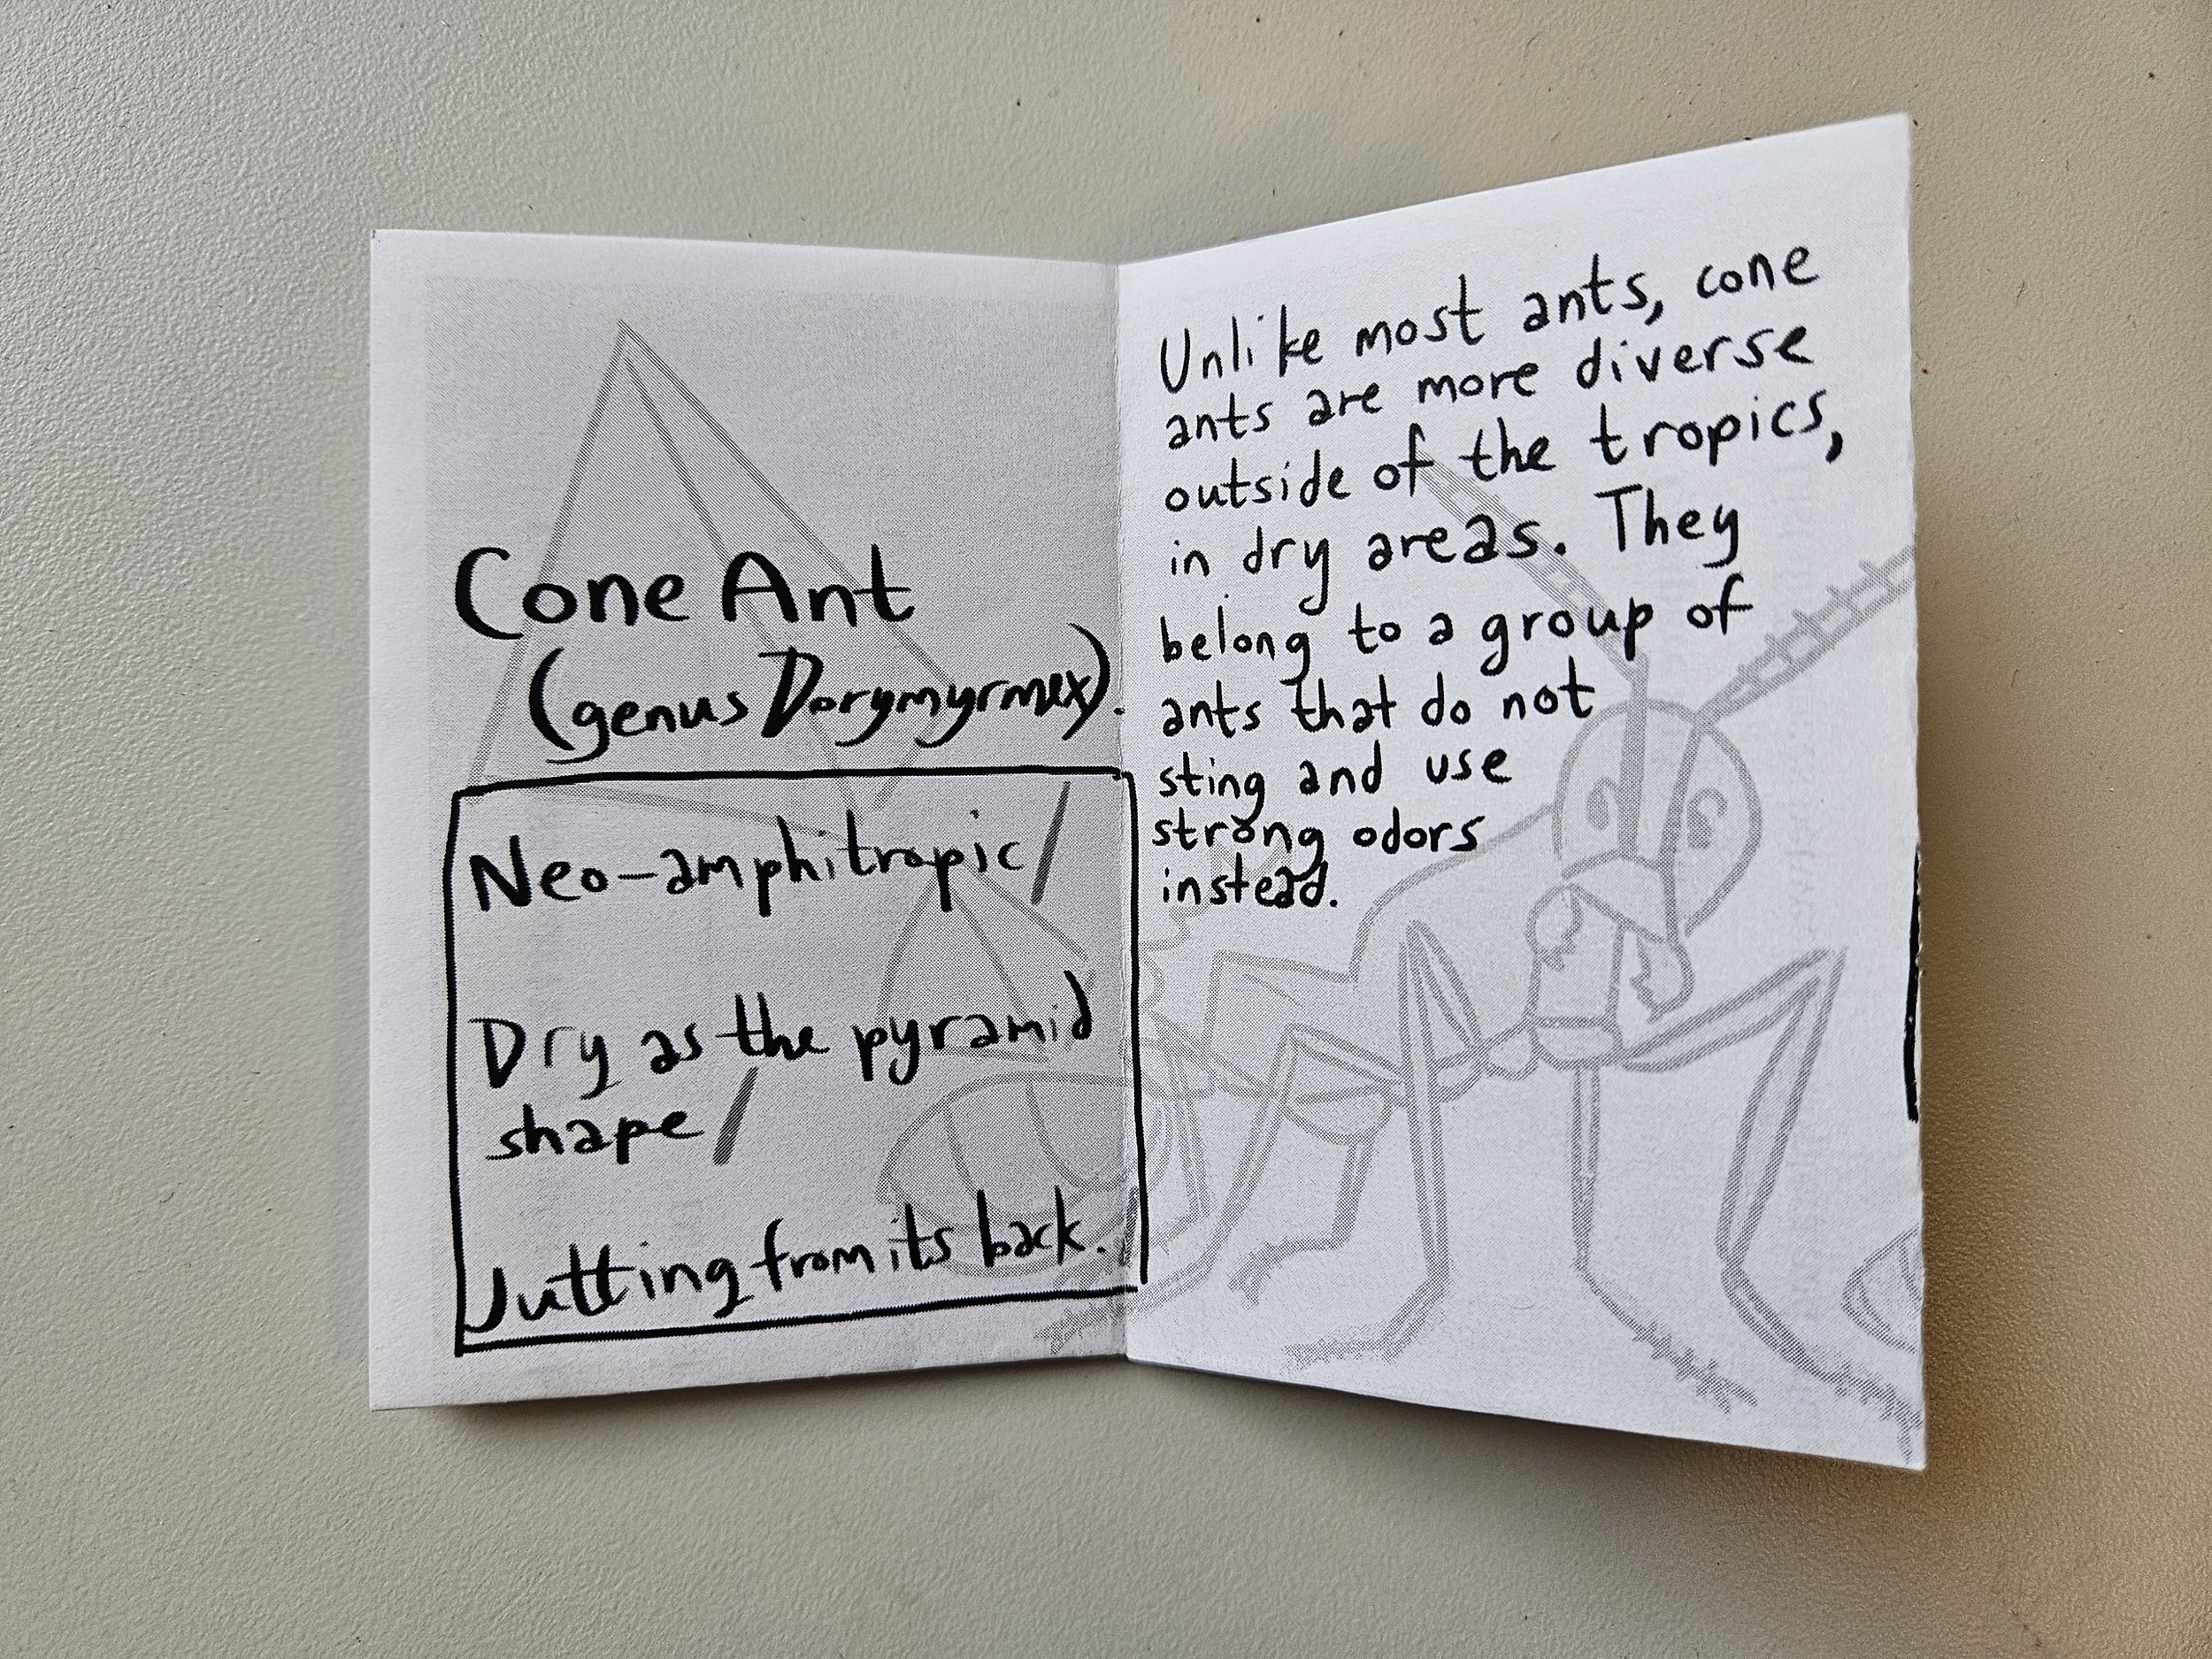 Cone Ant
(genus Dorymyrmex).
Neo-amphitropic/
Dry as the pyramid
shape/
Jutting from its back.
Unlike most ants, cone
ants are more diverse
outside of the tropics,
in dry areas. They
belong to a group of
ants that do not
sting and use
strong odors
instead.